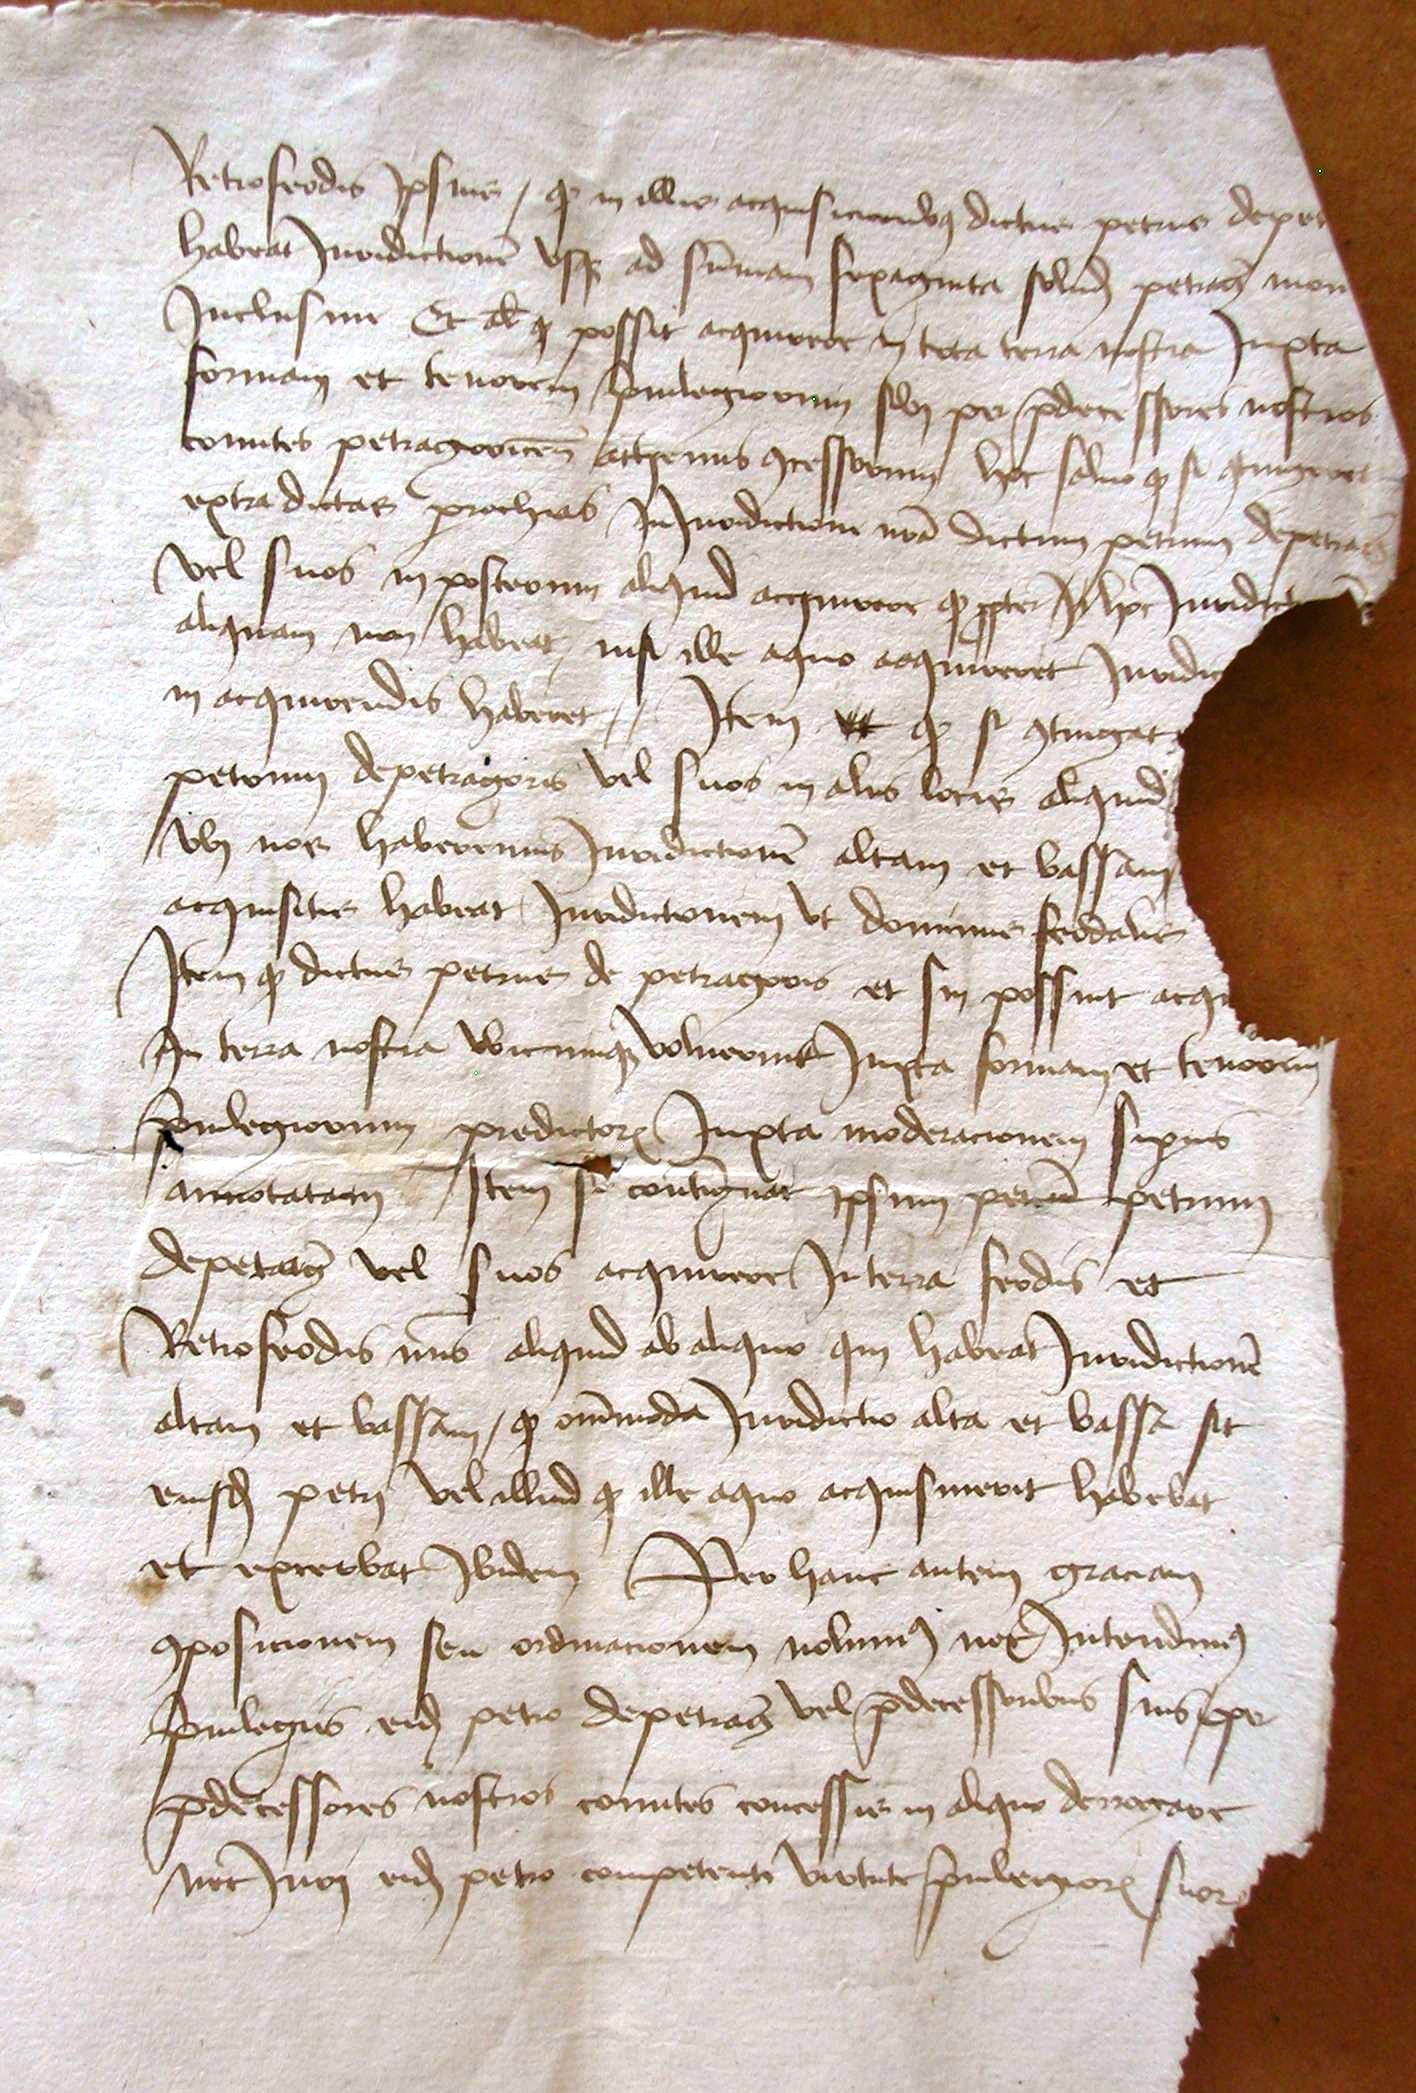 Retrofeodis ipsius / q in illis acquisicionibus dictus petrus de pet
habeat Juridictionē usq ad sūmam sexaginta solid petrag mon
Inclusive Et al q possit acquirere in tota terra nostra Juxta
formam et tenorem privilegiorum sibi per pdecessores nostros
comites petragoricen actenus concessorum hoc salvo q si contingeret
extra dictas prochias In Juridictione nrā dictum petrum de petrag
vel suos in posterum aliquid acquirere q ppter hoc Juridict
aliquam non habeat / nisi ille a quo acquireret Juridic
in acquirendis haberet // Item q si contingat
petrum de petragoris vel suos in aliis locis aliquid
ubi nos haberemus Juridictionē altam et bassam
acquisitis habeat Juridictionem ut dominus feodalis
Item q dictus petrus de petragoris et sui possint acqu
In terra nostra ubicumq voluerint Juxta formam et tenorem
privilegiorum predictor Juxta moderacionem supius
annotatam Item si contingat ipsum petrum
de petrag vel suos acquirere In terra feodis et
Retrofeodis nris aliquid ab aliquo qui habeat Juridictionē
altam et bassam / q omīmoda Juridictio alta et bassa sit
eiusd petri vel illud q ille a quo acquisiverit habebat
et exercebat Ibidem Per hanc autem graciam
composicionem seu ordinacionem nolumus nec Intendimus
privilegiis eid petro de petrag vel pdecessoribus suis per
pdecessores nostros comites concessis in aliquo derrogare
nec Juri eid petro competenti virtute privilegior suor